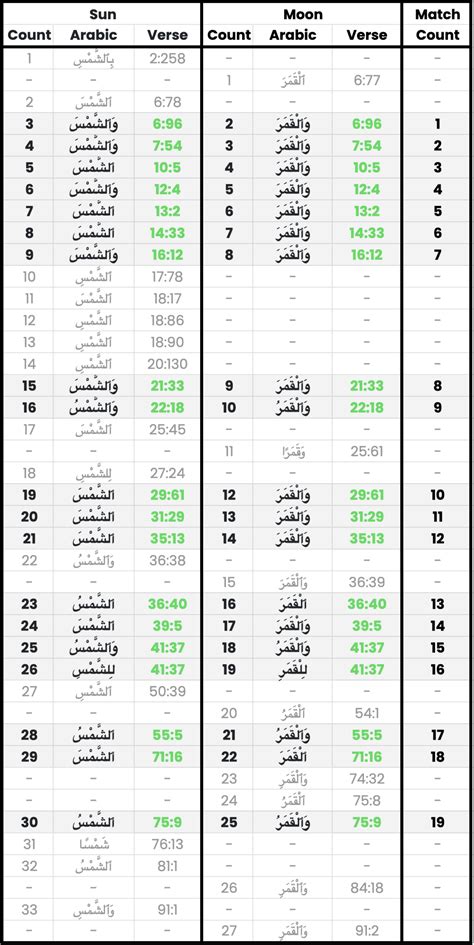 Sun Moon Match
Count Arabic Verse Count Arabic Verse Count
1 بِٱلشَّمْسِ 2:258 - - - -
- - - 1 ٱلْقَمَرَ 6:77 -
2 ٱلشَّمْسَ 6:78 - - - -
3 وَٱلشَّمْسَ 6:96 2 وَٱلْقَمَرَ 6:96 1
4 وَٱلشَّمْسَ 7:54 3 وَٱلْقَمَرَ 7:54 2
5 ٱلشَّمْسَ 10:5 4 وَٱلْقَمَرَ 10:5 3
6 وَٱلشَّمْسَ 12:4 5 وَٱلْقَمَرَ 12:4 4
7 ٱلشَّمْسَ 13:2 6 وَٱلْقَمَرَ 13:2 5
8 ٱلشَّمْسَ 14:33 7 وَٱلْقَمَرَ 14:33 6
9 وَٱلشَّمْسَ 16:12 8 وَٱلْقَمَرَ 16:12 7
10 ٱلشَّمْسِ 17:78 - - - -
11 ٱلشَّمْسَ 18:17 - - - -
12 ٱلشَّمْسِ 18:86 - - - -
13 ٱلشَّمْسِ 18:90 - - - -
14 ٱلشَّمْسِ 20:130 - - - -
15 وَٱلشَّمْسَ 21:33 9 وَٱلْقَمَرَ 21:33 8
16 وَٱلشَّمْسُ 22:18 10 وَٱلْقَمَرُ 22:18 9
17 ٱلشَّمْسَ 25:45 - - - -
- - - 11 وَقَمَرًا 25:61 -
18 لِلشَّمْسِ 27:24 - - - -
19 ٱلشَّمْسَ 29:61 12 وَٱلْقَمَرَ 29:61 10
20 ٱلشَّمْسَ 31:29 13 وَٱلْقَمَرَ 31:29 11
21 ٱلشَّمْسَ 35:13 14 وَٱلْقَمَرَ 35:13 12
22 وَٱلشَّمْسُ 36:38 - - - -
- - - 15 وَٱلْقَمَرَ 36:39 -
23 ٱلشَّمْسُ 36:40 16 ٱلْقَمَرَ 36:40 13
24 ٱلشَّمْسَ 39:5 17 وَٱلْقَمَرَ 39:5 14
25 وَٱلشَّمْسُ 41:37 18 وَٱلْقَمَرُ 41:37 15
26 لِلشَّمْسِ 41:37 19 لِلْقَمَرِ 41:37 16
27 ٱلشَّمْسِ 50:39 - - - -
- - - 20 ٱلْقَمَرُ 54:1 -
28 ٱلشَّمْسُ 55:5 21 وَٱلْقَمَرُ 55:5 17
29 ٱلشَّمْسَ 71:16 22 ٱلْقَمَرَ 71:16 18
- - - 23 وَٱلْقَمَرِ 74:32 -
- - - 24 ٱلْقَمَرُ 75:8 -
30 ٱلشَّمْسُ 75:9 25 وَٱلْقَمَرُ 75:9 19
31 شَمْسًا 76:13 - - - -
32 ٱلشَّمْسُ 81:1 - - - -
- - - 26 وَٱلْقَمَرِ 84:18 -
33 وَٱلشَّمْسِ 91:1 - - - -
- - - 27 وَٱلْقَمَرِ 91:2 -